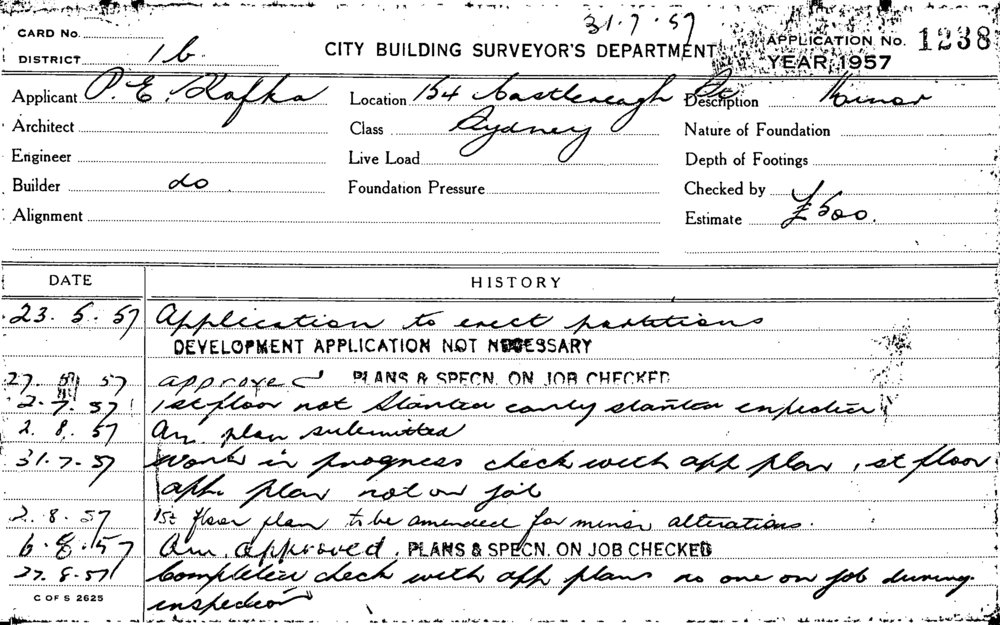 31.7.57
CARD No.
DISTRICT 1b.
CITY BUILDING SURVEYOR'S DEPARTMENT
APPLICATION No. 1238
YEAR, 1957
Applicant P. E. Kafka Location 154 Castlereagh St Description Minor
Architect Class Sydney Nature of Foundation
Engineer Live Load Depth of Footings
Builder do Foundation Pressure Checked by
Alignment Estimate £500.
DATE HISTORY
23. 5. 57 Application to erect partitions
DEVELOPMENT APPLICATION NOT NECESSARY
27. 5 57 approved PLANS & SPECN. ON JOB CHECKED
2. 7. 57 1st floor not started early
2. 8. 57 Am. plan submitted
31.7.57 Work in progress check with app plan 1st floor
app. plan not on job
2. 8. 57 1st floor plan to be amended for minor alterations.
6. 8. 57 Am. approved. PLANS & SPECN. ON JOB CHECKED
27. 8. 57 Completed check with app plans no one on job during
inspection
C OF S 2625